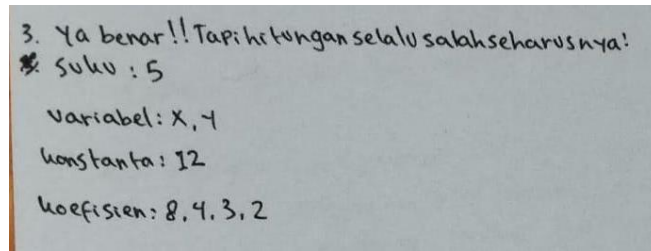 3. Ya benar!! Tapi hitungan selalu salah seharusnya!
suku : 5
variabel: x, y
konstanta: 12
koefisien: 8, 4, 3, 2